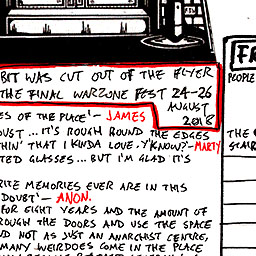 BIT WAS CUT OUT OF THE FLYER
THE FINAL WARZONE FEST 24-26
AUGUST
2018
ES OF THE PLACE' — JAMES
OUST... IT'S ROUGH ROUND THE EDGES
THIN' THAT I KINDA LOVE, Y'KNOW?' — MARTY
TED GLASSES... BUT I'M GLAD IT'S
RITE MEMORIES EVER ARE IN THIS
DOUBT' — ANON.
FOR EIGHT YEARS AND THE AMOUNT OF
ROUGH THE DOORS AND USE THE SPACE
D NOT AS JUST AN ANARCHIST CENTRE,
MANY WEIRDOES COME IN THE PLACE
PEOPLE
THE